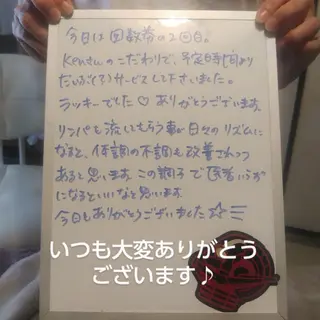 今日は回数券の2回目。
Kenさんのこだわりで、予定時間より
だいぶ(?)サービスして下さいました。
ラッキーでした♡ ありがとうございます。
リンパを流してもらう事が日々のリズムに
なると、体調の不調も改善されつつ
あると思います。この調子で医者いらず
になるといいなと思います。
今日もありがとうございました☆
いつも大変ありがとう
ございます♪